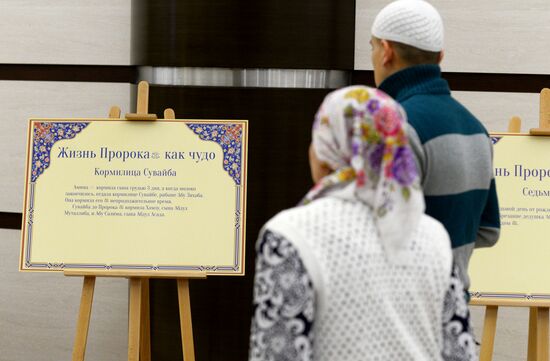 Жизнь Пророка ﷺ как чудо
Кормилица Сувайба
Амина — кормила сына 3 дня, а когда молоко
закончилось, отдала кормилице, рабыне Абу Лахаба.
Она кормила его ﷺ непродолжительное время.
Сувайба до Пророка ﷺ кормила Хамзу, сына Абдул
Мутталиба, и Абу Салиму, сына Абдул Асада.
Жизнь
Седьм